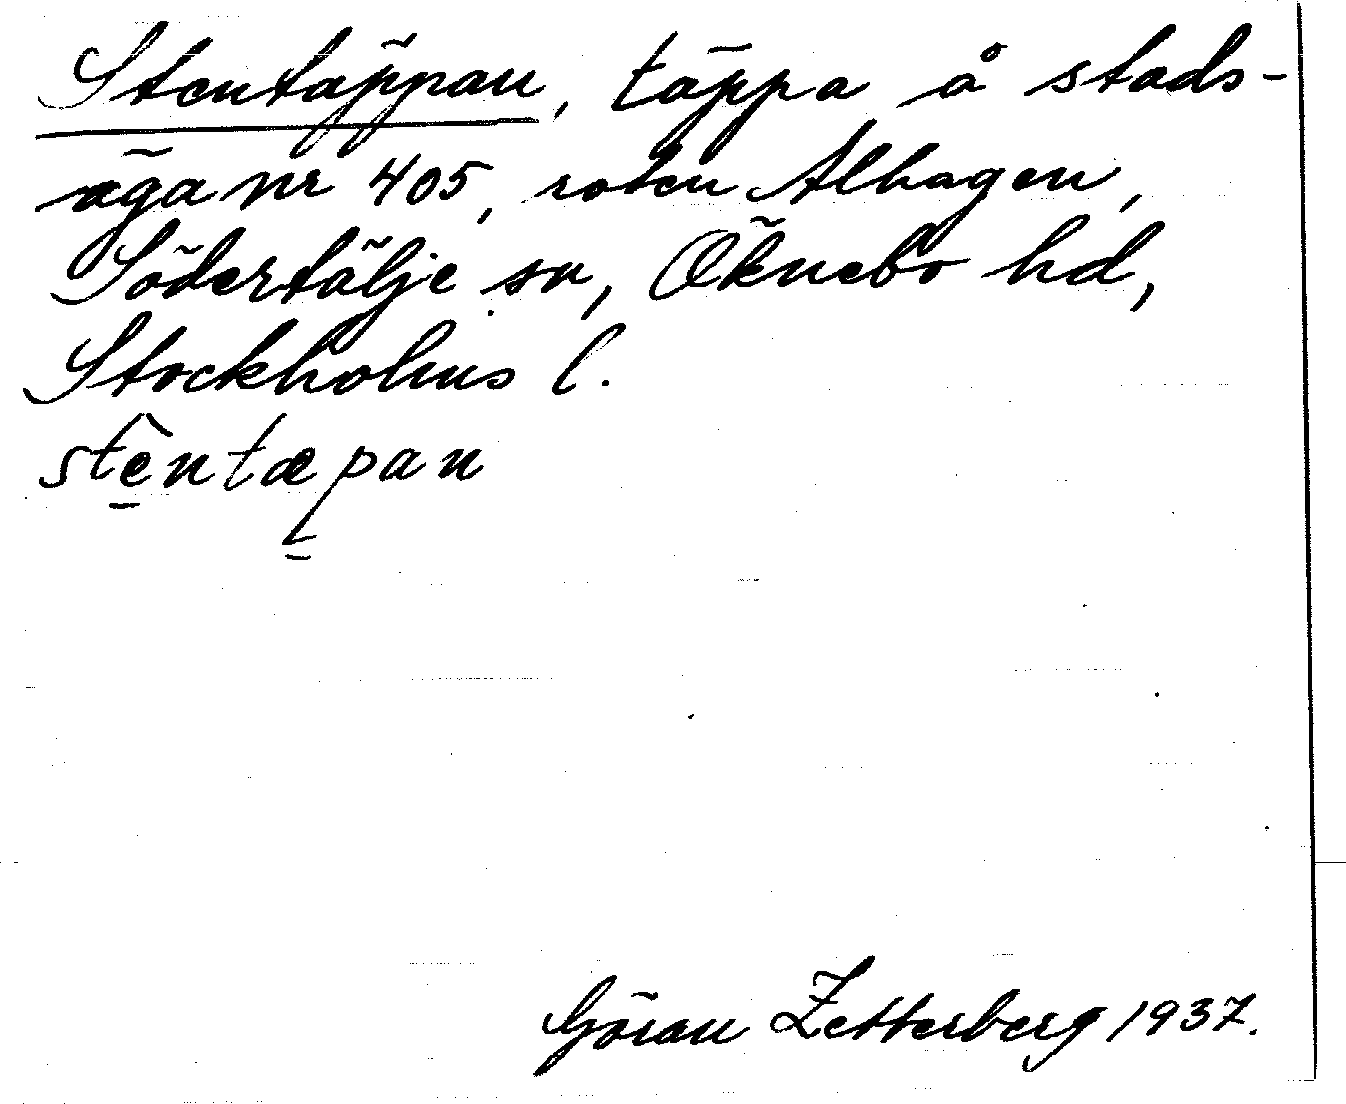 Stentäppan, täppa å stads-
äga nr 405, roten Alhagen,
Södertälje sn, Öknebo hd,
Stockholms l.
stèntæpan
Göran Zetterberg 1937.